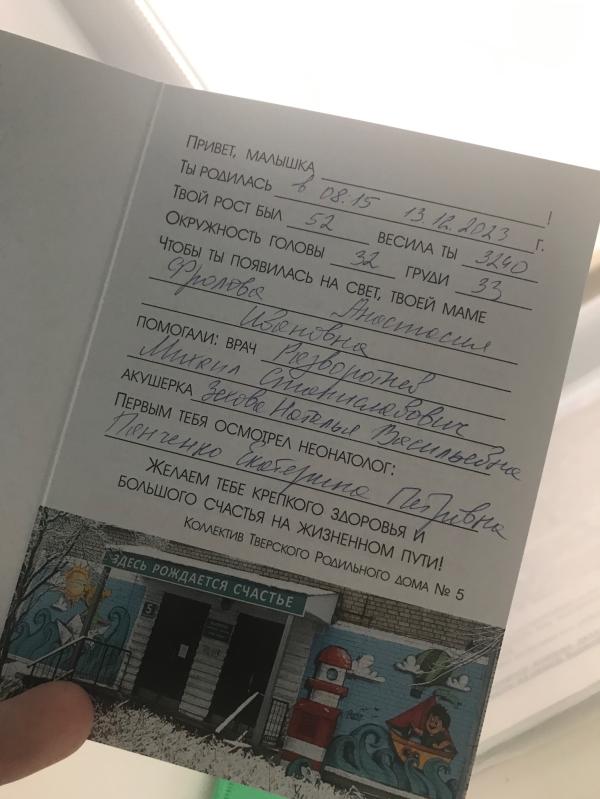 Привет, малышка !
Ты родилась в 08.15 13.12.2023 г.
Твой рост был 52 весила ты 3240
Окружность головы 32 груди 33
Чтобы ты появилась на свет, твоей маме
Фролова Анастасия
Ивановна
помогали: врач Разворотнев
Михаил Станиславович
акушерка Зехова Наталья Васильевна
Первым тебя осмотрел неонатолог:
Панченко Екатерина Петровна
Желаем тебе крепкого здоровья и
большого счастья на жизненном пути!
Коллектив Тверского Родильного дома № 5
ЗДЕСЬ РОЖДАЕТСЯ СЧАСТЬЕ
5